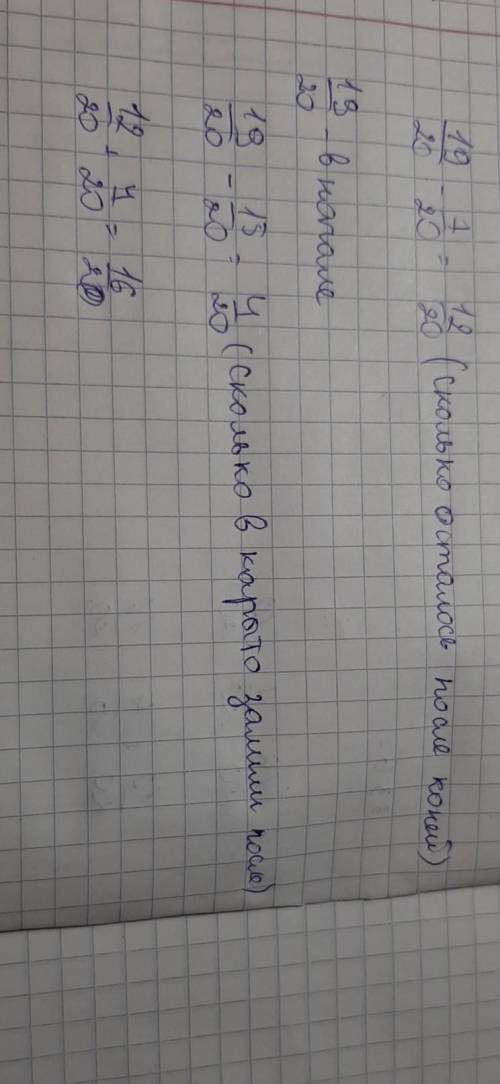 19/20 - 7/20 = 12/20 (сколько осталось после коней)
19/20 - в начале
19/20 - 15/20 = 4/20 (сколько в карыто залили после)
12/20 + 4/20 = 16/20